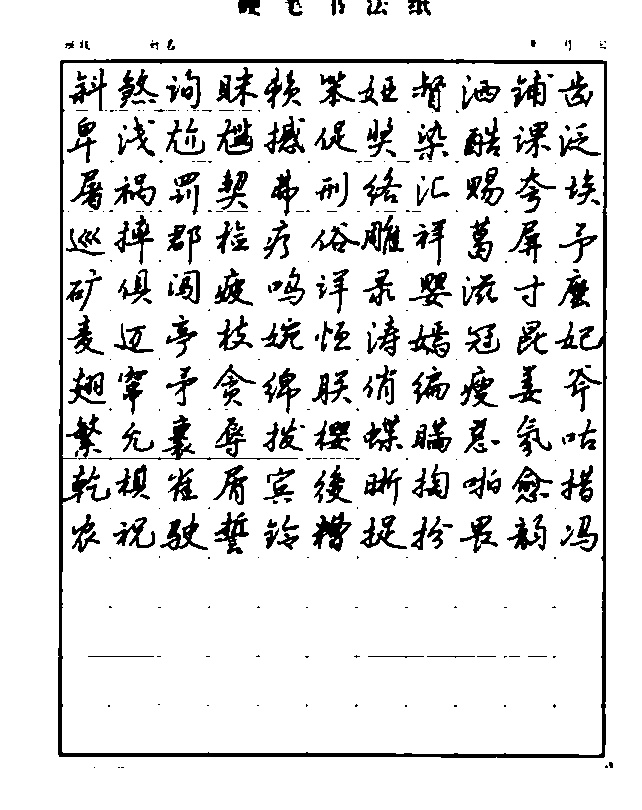 硬笔书法纸
班级 姓名 年 月 日
斜煞询眯赖笨娅督洒铺齿
卑浅尬尴撼促奖染酷课泛
屠祸罚契弗刑络汇赐夸埃
巡摔郡检疗俗雕祥葛屏予
矿俱闯疲鸣详录婴滋寸座
麦迈亭枝婉恒涛嫣冠昆妃
翅窜矛贪绵朕俏编瘦姜斧
繁允裹辱拔樱蝶瞒惹氛咕
乾棋雀屑宾後晰掏啪愈措
农祝驶誓铃糟捉扮畏韵冯